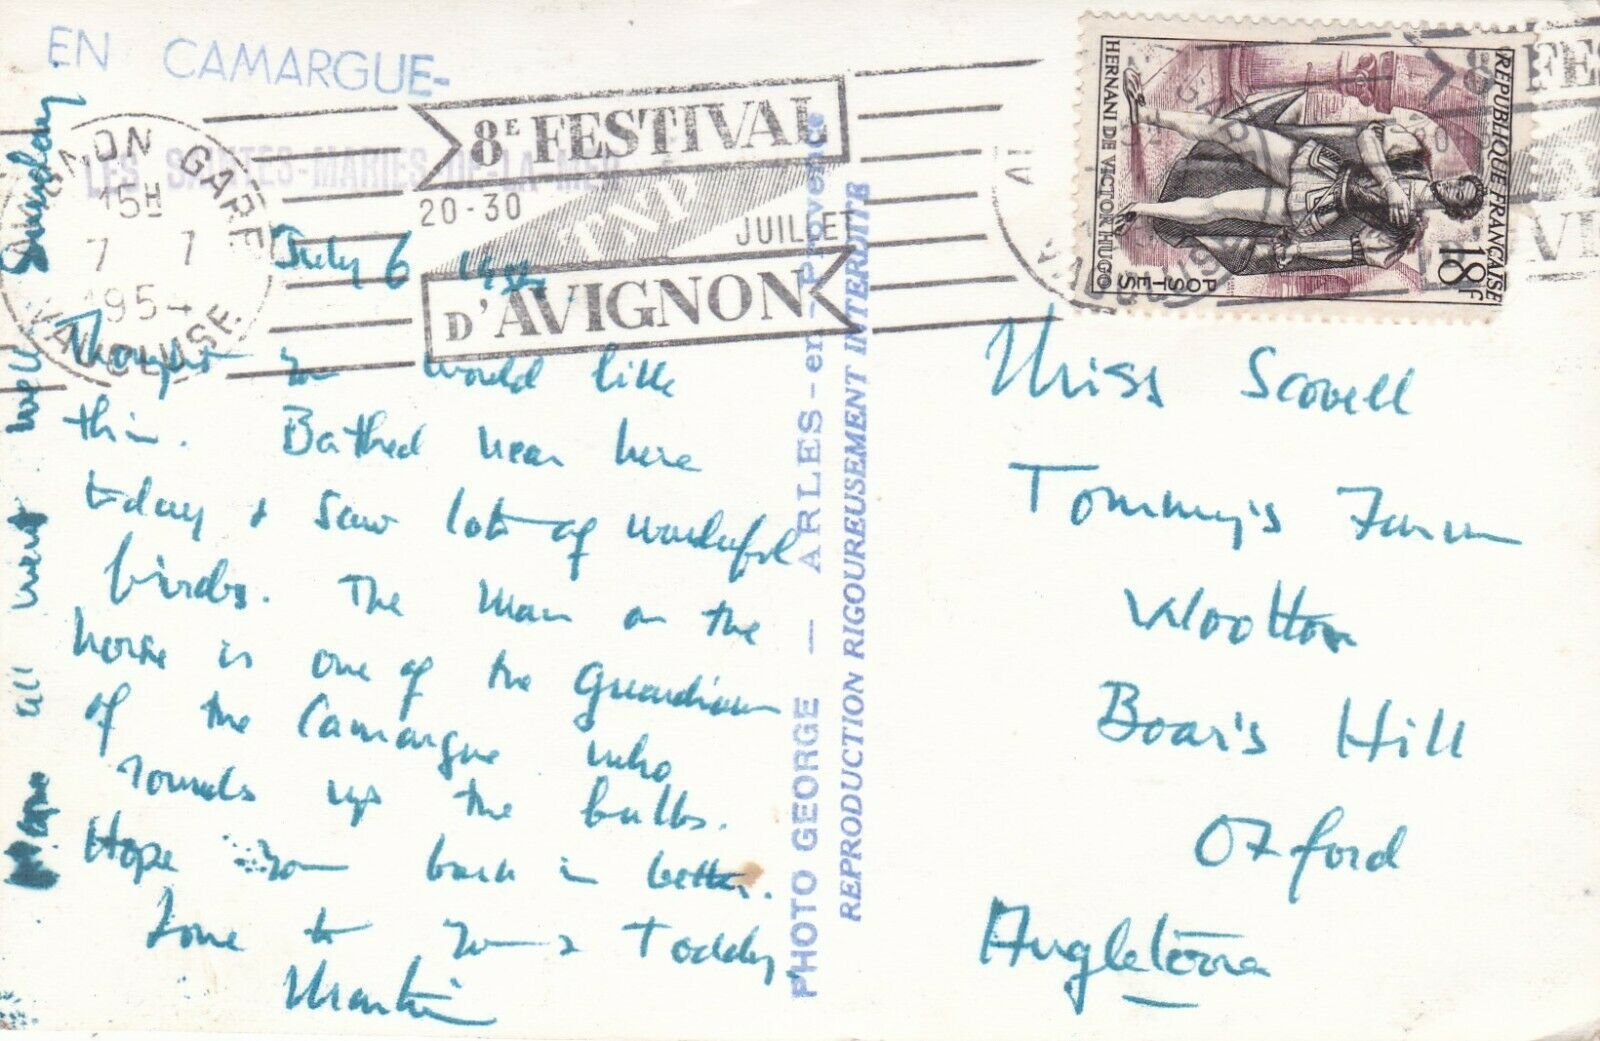 EN CAMARGUE-
LES SAINTES-MARIES-DE-LA-MER
AVIGNON GARE
15H
7 7
1954
VAUCLUSE.
8E FESTIVAL
20-30
TNP
JUILLET
D'AVIGNON
RÉPUBLIQUE FRANÇAISE
HERNANI DE VICTOR HUGO
POSTES
18F
July 6 1954
Thought you would like
this. Bathed near here
today & saw lots of wonderful
birds. The man on the
horse is one of the Guardians
of the Camargue who
rounds up the bulls.
Hope your back is better.
Love to you & Toddy,
Martin
Hope all went well
Sunday
PHOTO GEORGE — ARLES-en-Provence
REPRODUCTION RIGOUREUSEMENT INTERDITE
Miss Scovell
Tommy's Farm
Wootton
Boar's Hill
Oxford
Angleterre